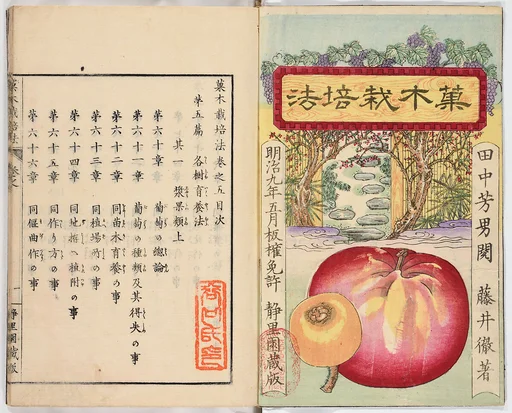 菓木栽培法
田中芳男閲 藤井徹著
明治九年五月板権免許 静里園蔵版
菓木栽培法巻之五目次
第五篇 各樹育養法
其一 漿果類上
第六十章 葡萄の總論
第六十一章 葡萄の種類及其得失の事
第六十二章 同苗木育養の事
第六十三章 同植場所の事
第六十四章 同地拵へ植附の事
第六十五章 同作り方の事
第六十六章 同偃曲作の事
菓木栽培法
静里園蔵版